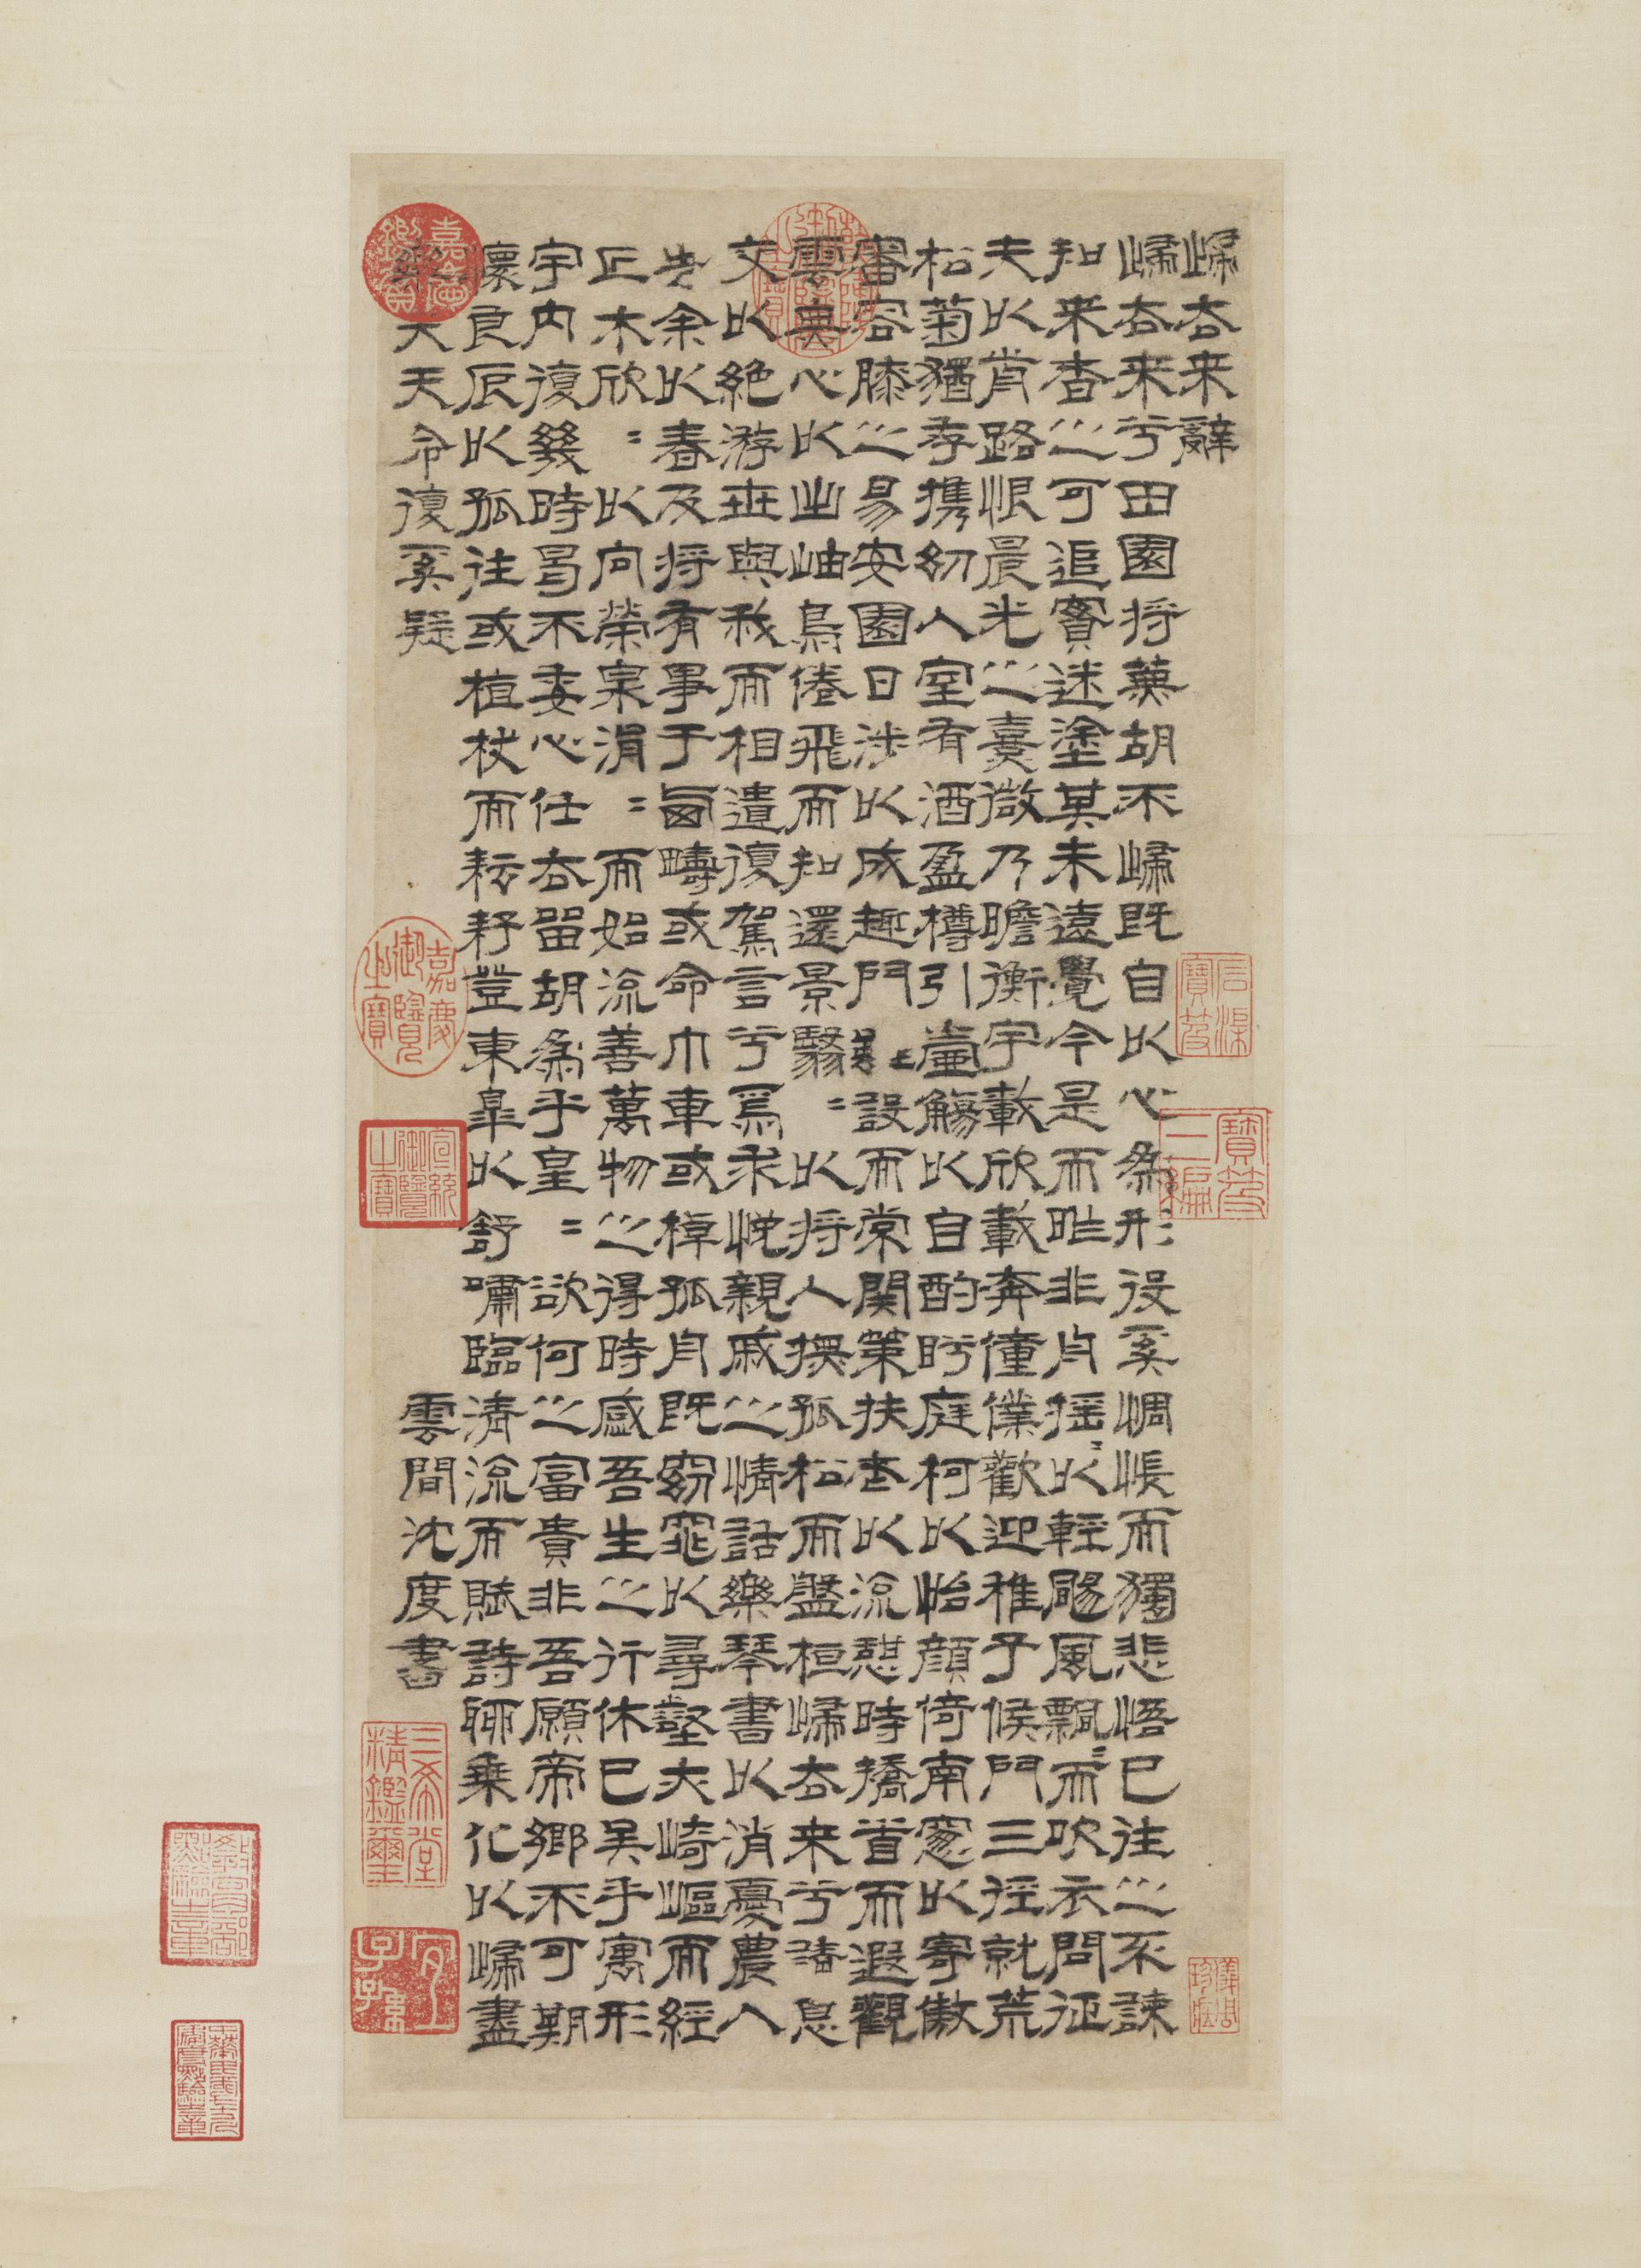 歸去来辭
歸去来兮田園將蕪胡不歸既自以心為形役奚惆悵而獨悲悟已往之不諫
知来者之可追實迷塗其未遠覺今是而昨非舟揺〻以輕颺風飄〻而吹衣問征
夫以前路恨晨光之熹微乃瞻衡宇載欣載奔僮僕歡迎稚子候門三徑就荒
松菊猶存携幼入室有酒盈樽引壺觴以自酌眄庭柯以怡顏倚南窓以寄傲
審容膝之易安園日涉以成趣門雖設而常關策扶老以流憩時矯首而遐觀
雲無心以出岫鳥倦飛而知還景翳〻以將入撫孤松而盤桓歸去来兮請息
交以絶游世與我而相遺復駕言兮焉求悅親戚之情話樂琴書以消憂農人
告余以春及將有事于西疇或命巾車或棹孤舟既窈窕以尋壑亦崎嶇而經
丘木欣〻以向榮泉涓〻而始流善萬物之得時感吾生之行休已矣乎寓形
宇内復幾時曷不委心任去留胡為乎皇〻欲何之富貴非吾願帝鄉不可期
懷良辰以孤往或植杖而耘耔登東皋以舒嘯臨清流而賦詩聊乗化以歸盡
樂夫天命復奚疑
雲間沈度書
嘉慶鑑賞
乾隆御覽之寶
嘉慶御覽之寶
宣統御覽之寶
三希堂精鑑璽
宜子孫
石渠寶笈
寶笈三編